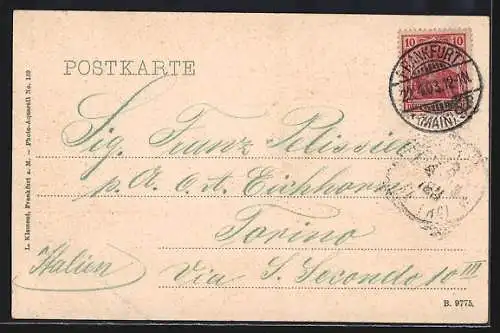 POSTKARTE
10 10
FRANKFURT
(MAIN)
L. Klement, Frankfurt a. M. — Photo-Aquarell No. 139
Sig. Franz Pelissier
p. A. C. A. Eichhorn
Torino
Italien
Via S. Secondo 10 III
B. 9775.